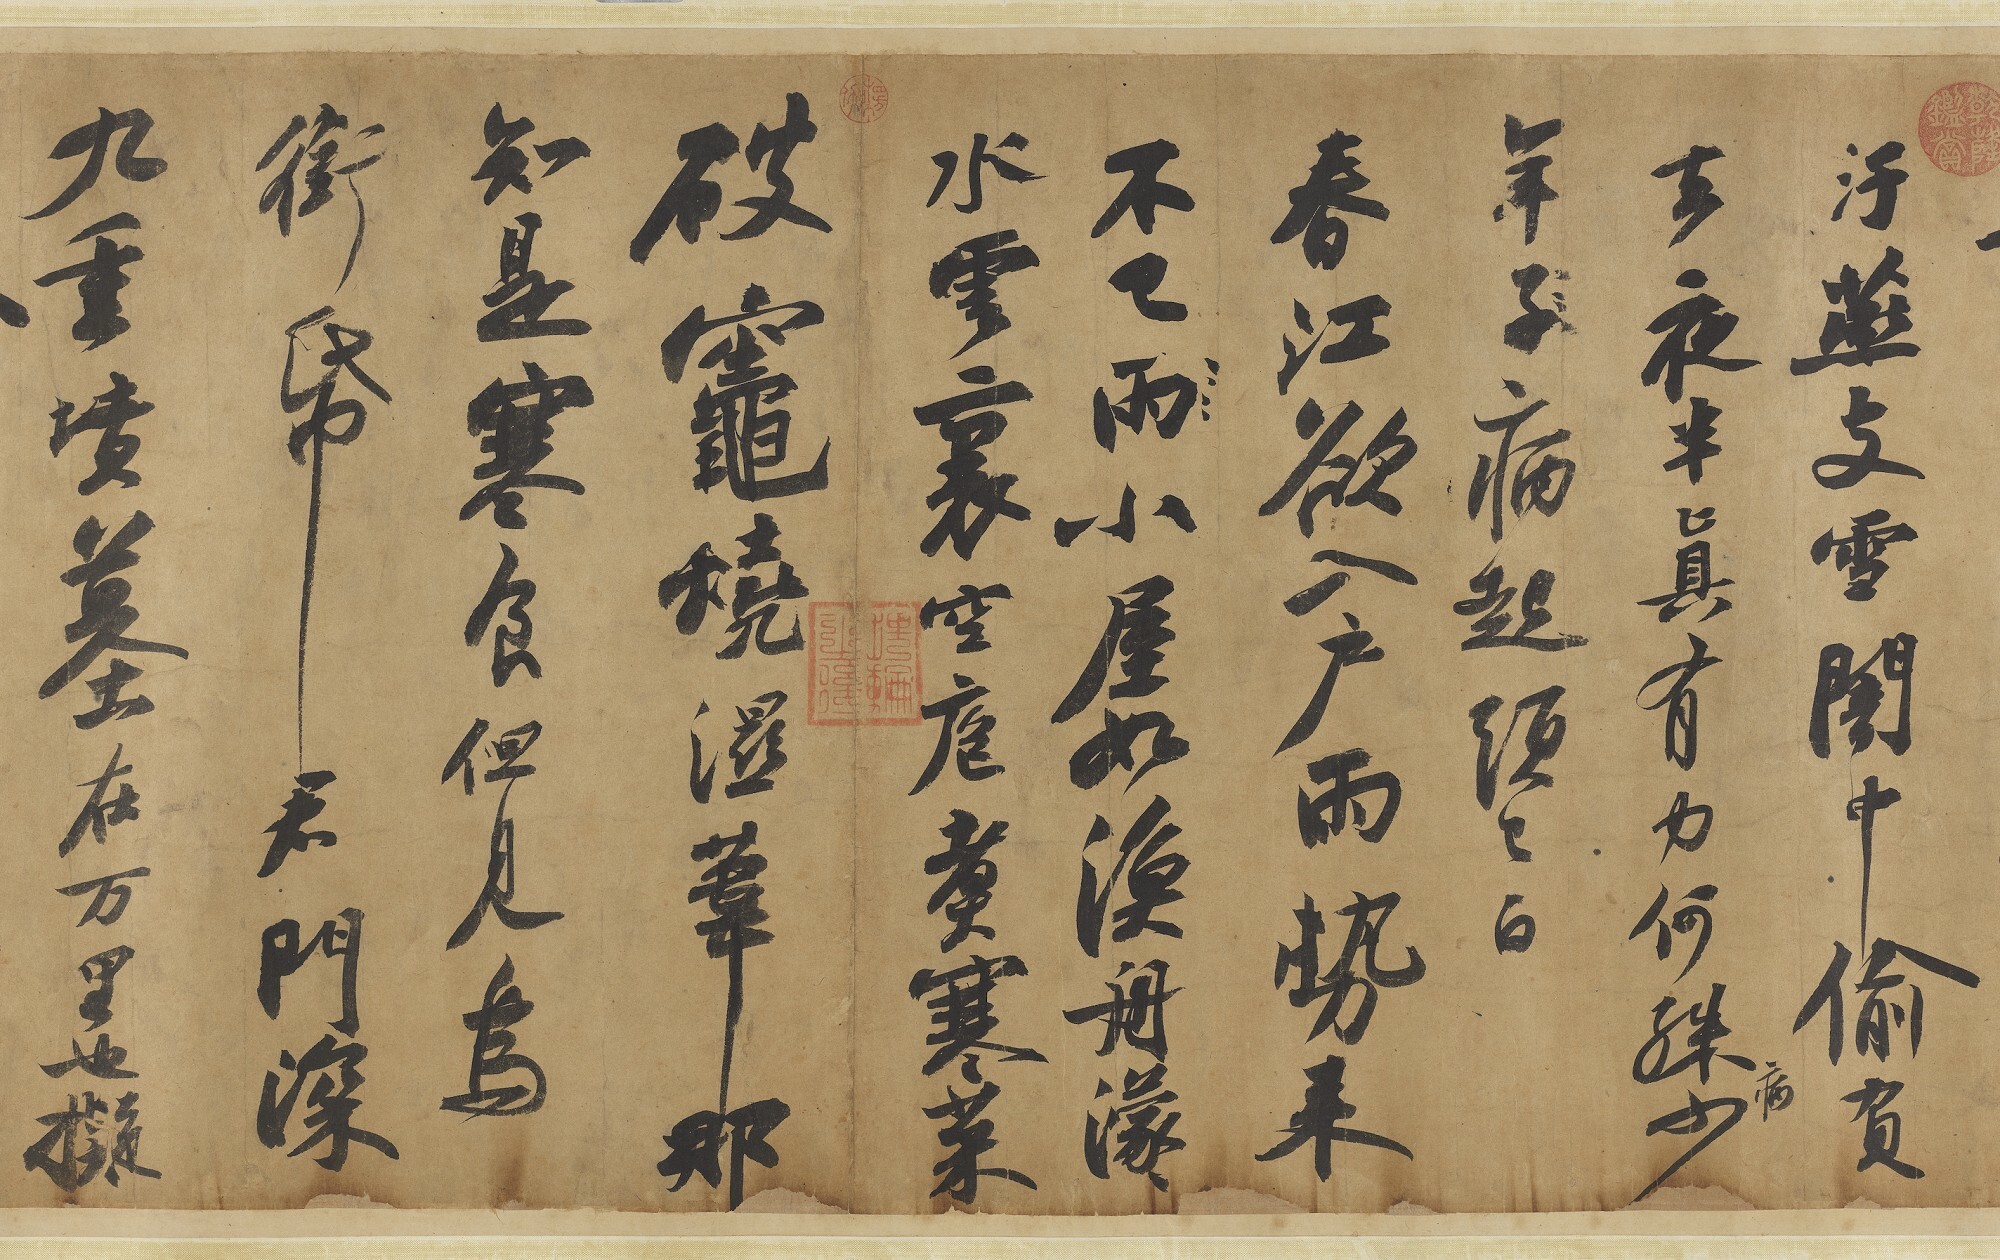 汙燕支雪闇中偷負
去夜半真有力何殊少
年子病起頭已白
病
春江欲入戶雨勢來
不已雨小屋如漁舟濛〻
水雲裏空庖煑寒菜
破竈燒濕葦那
知是寒食但見烏
銜帋君門深
九重墳墓在万里也擬